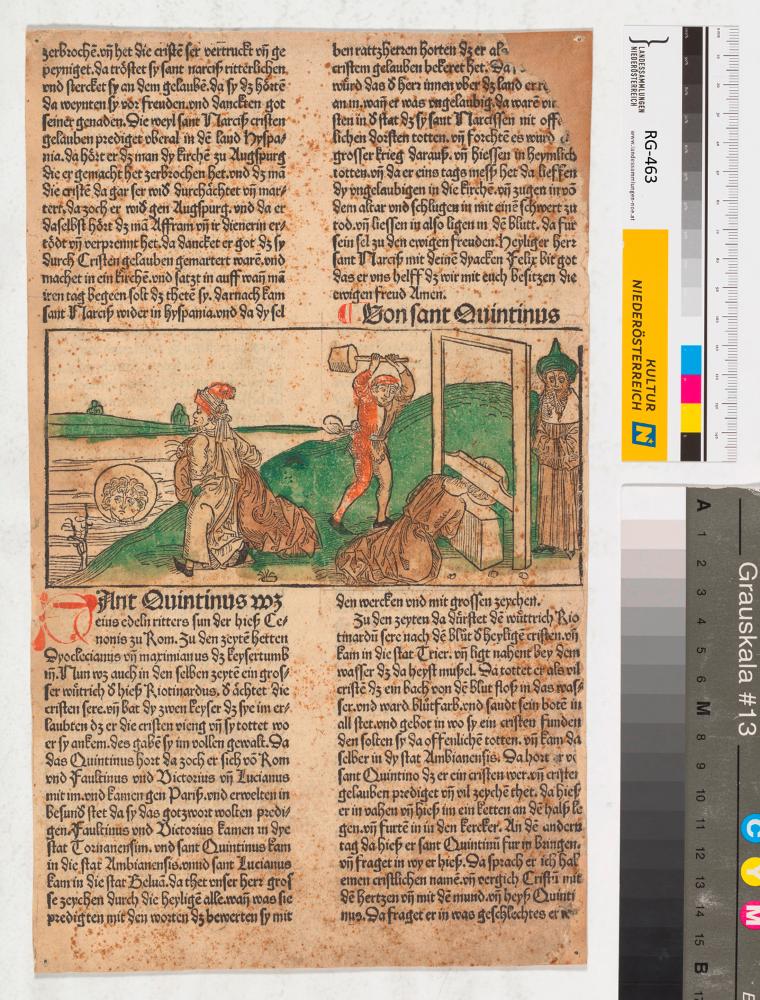 zerbrochē.vñ het die cristē ser vertruckt vñ ge
peyniget.da tröstet sy sant narciß ritterlichen
vnd stercket sy an dem gelaubē.da sy dz hörtē
da weynten sy vor freuden.vnd danckten got
seiner genaden. Die weyl sant Narciß cristen
gelauben prediget vberal in dē land Hyspa-
nia.da hört er dz man dy kirchē zu Augspurg
die er gemacht het zerbrochen het.vnd dz mā
die cristē da gar ser wid durchächtet vñ mar-
tert.da zoch er wid gen Augspurg.vnd da er
daselbst hört dz mā Affram vñ ir dienerin er-
tödt vñ verprennt het.da dancket er got dz sy
durch Cristen gelauben gemartert warē.vnd
machet in ein kirchē.vnd satzt in auff wañ mā
iren tag begeen solt dz thetē sy. darnach kam
sant Narciß wider in hyspania.vnd da dy sel
ben rattzherren horten dz er als
cristem gelauben bekeret het. Da
würd das d herr innen vber dz land
an im.wañ er was vngelaubig.da warē vil
sten in d stat dz sy sant Narcissen nit off
lichen dorsten totten.vñ forchtē es würd
grosser krieg darauß.vñ hiessen in heymlich
totten.vñ da er eins tags meß het da lieffen
dy vngelaubigen in die kirche.vñ zugen in vō
dem altar vnd schlugen in mit einē schwert zu
tod.vñ liessen in also ligen in dē blutt. da für
sein sel zu den ewigen freuden. Heyliger herr
sant Narciß mit deinē dyacken Felix bit got
das er vns helff dz wir mit euch besitzen die
ewigen freud Amen.
Von sant Quintinus
SAnt Quintinus wz
eius edeln ritters sun der hieß Ce-
nonis zu Rom. Zu den zeytē hetten
Dyoclecianis vñ maximianus dz keysertumb
iñ. Nun wz auch in den selben zeytē ein gros-
ser wütrich d hieß Riotinardus. d ächtet die
cristen sere.vñ bat dy zwen keyser dz sye im er-
laubten dz er die cristen vieng vñ sy tottet wo
er sy ankem.des gabē sy im vollen gewalt. Da
das Quintinus hort da zoch er sich vō Rom
vnd Faustinus vnd Victorius vñ Lucianus
mit im.vnd kamen gen Pariß.vnd erwelten in
besund stet da sy das gotzwort wolten predi-
gen. Faustinus vnd Victorius kamen in dye
stat Tornanensim. vnd sant Quintinus kam
in die stat Ambianensis.vnnd sant Lucianus
kam in die stat Belua.da thet vnser herr gros
se zeychen durch die heyligē alle.wañ was sie
predigten mit den worten dz bewerten sy mit
den wercken vnd mit grossen zeychen.
Zu den zeyten da dürstet dē wüttrich Rio
tinardū sere nach dē blüt d heyligē cristen.vñ
kam in die stat Trier. vñ ligt nahent bey dem
wasser dz da heyst mußel. Da tottet er als vil
cristē dz ein bach von dē blut floß in das was-
ser.vnd ward blütfarb.vnd sandt sein botē in
all stet.vnd gebot in wo sy ein cristen funden
den solten sy da offenlichē totten. vñ kam da
selber in dy stat Ambianensis. Da hort er vō
sant Quintino dz er ein cristen wer.vñ cristen
gelauben prediget vñ vil zeychē thet. da hieß
er in vahen vñ hieß im ein ketten an dē halß le
gen.vñ furtē in in den kercker. An dē andern
tag da hieß er sant Quintinū für in bringen.
vñ fraget in wy er hieß. Da sprach er ich hab
einen cristlichen namē.vñ vergich Cristū mit
dē hertzen vñ mit dē mund.vñ heyß Quinti
nus. Da fraget er in was geschlechtes er
LANDESSAMMLUNGEN
NIEDERÖSTERREICH
www.landessammlungen-noe.at
RG-463
KULTUR
NIEDERÖSTERREICH
N
Grauskala #13
A 1 2 3 4 5 6 M 8 9 10 11 12 13 14 15 B
C
Y
M